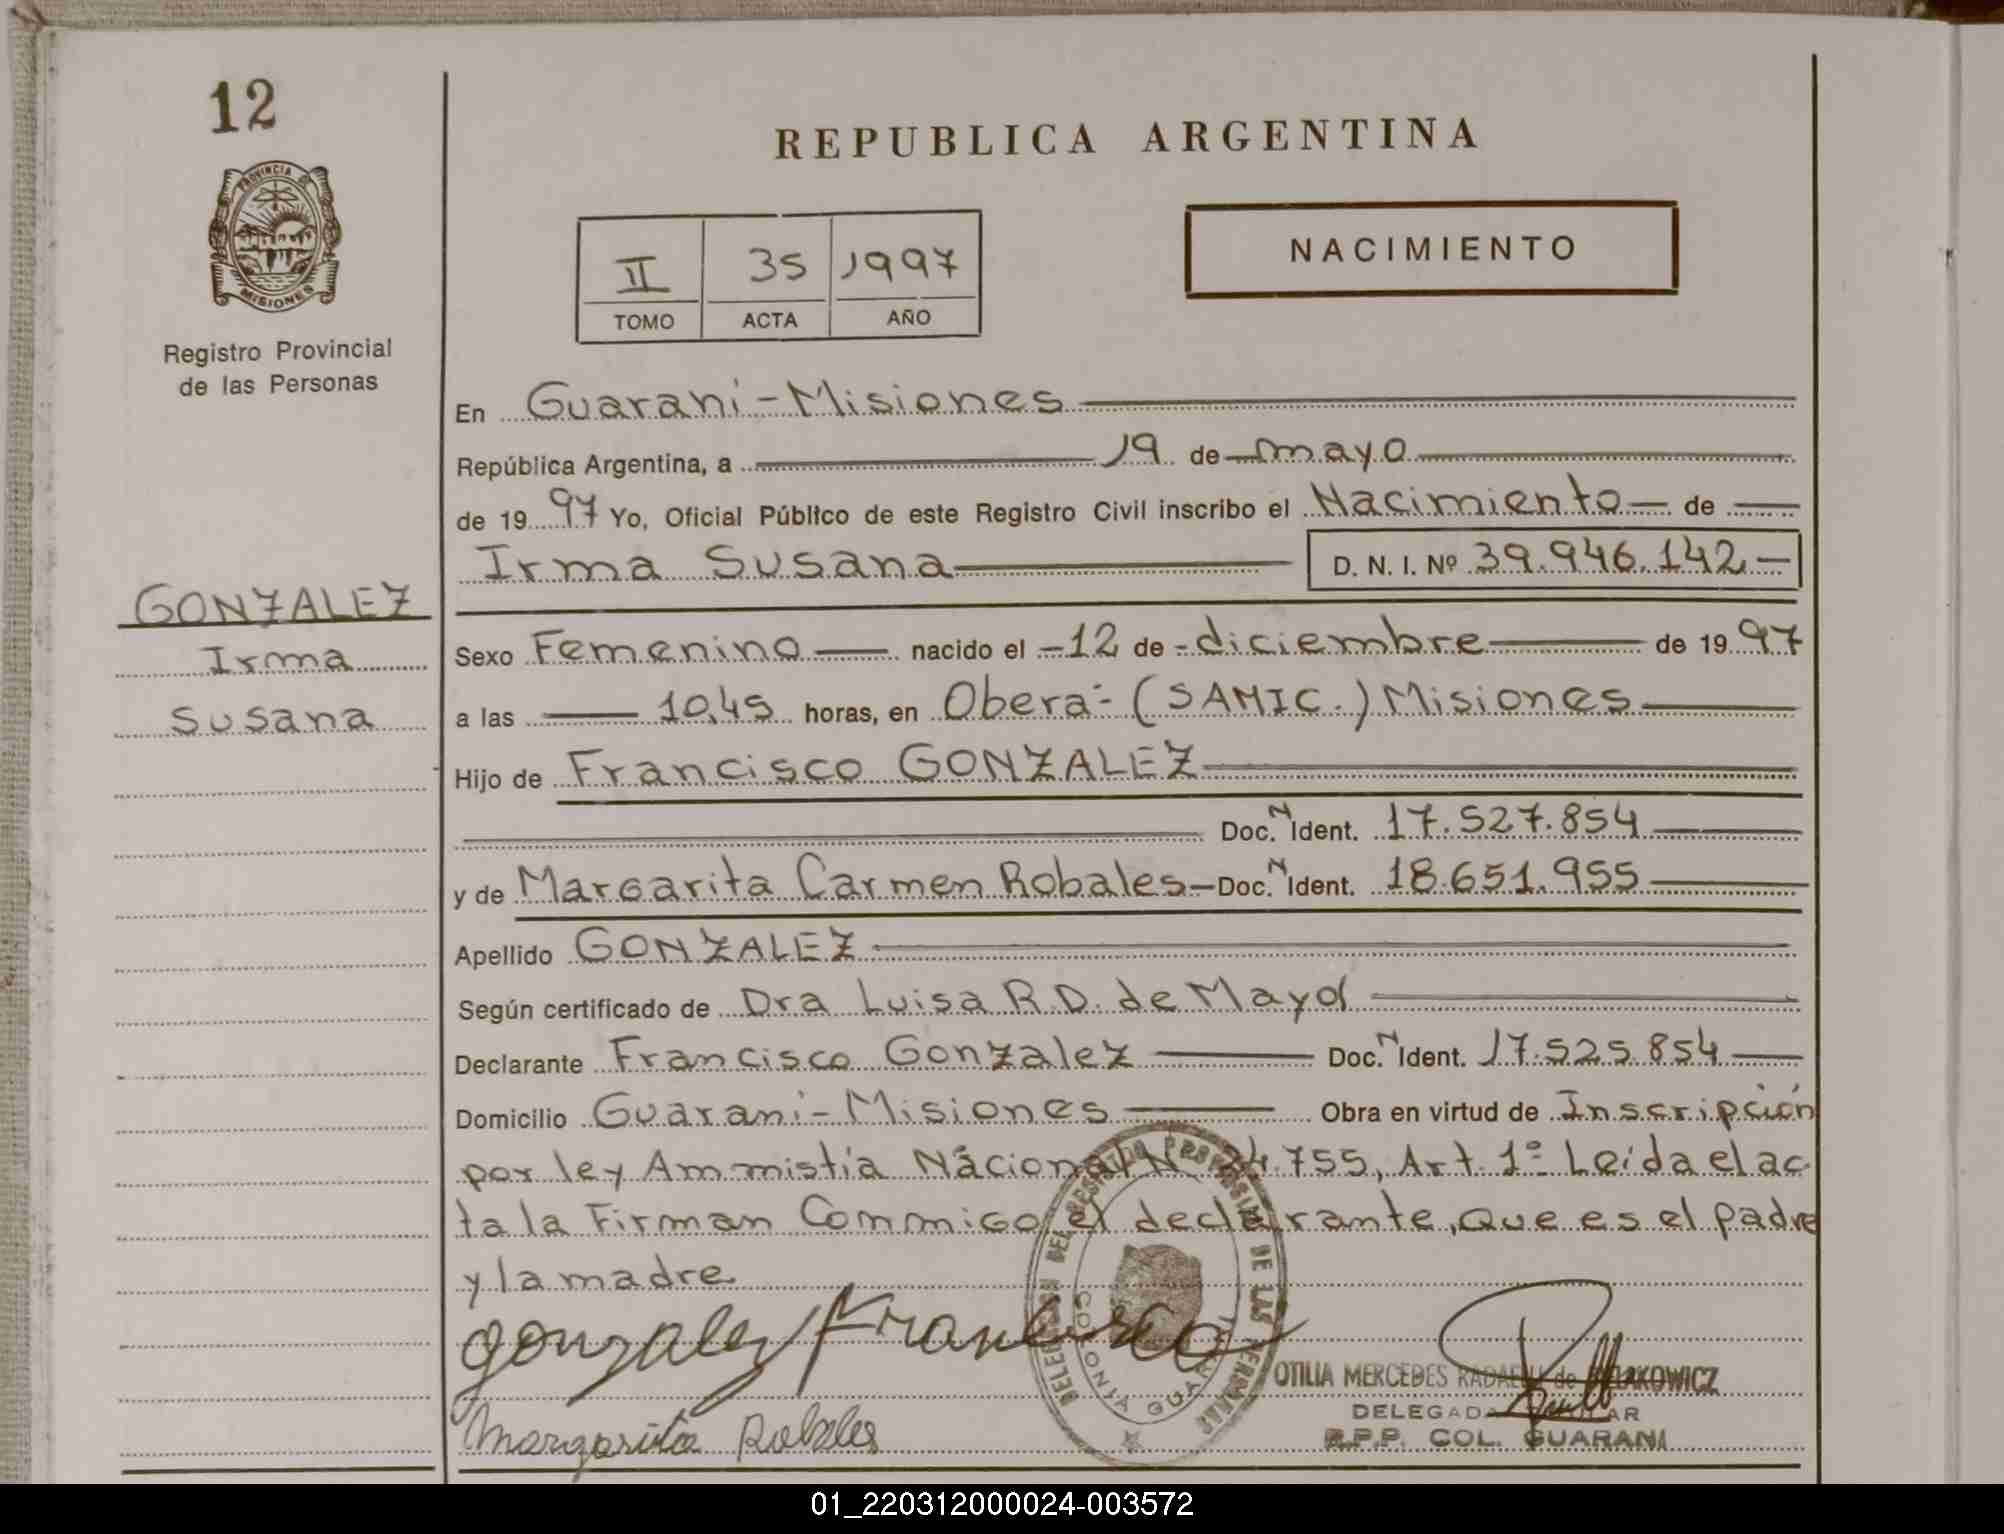 12
PROVINCIA DE
MISIONES
Registro Provincial
de las Personas
GONZALEZ
Irma
Susana
REPUBLICA ARGENTINA
II 35 1997
TOMO ACTA AÑO
NACIMIENTO
En Guaraní-Misiones
República Argentina, a 19 de mayo
de 1997 Yo, Oficial Público de este Registro Civil inscribo el Nacimiento de
Irma Susana D. N. I. Nº 39.946.142
Sexo Femenino nacido el 12 de diciembre de 1997
a las 10,45 horas, en Obera-(SAMIC.) Misiones
Hijo de Francisco GONZALEZ
Doc. N Ident. 17.527.854
y de Margarita Carmen Robales Doc. N Ident. 18.651.955
Apellido GONZALEZ
Según certificado de Dra Luisa R.D. de Mayol
Declarante Francisco Gonzalez Doc. N Ident. 17.525.854
Domicilio Guaraní-Misiones Obra en virtud de Inscripción
por ley Ammistía Nacional Nº 24.755, Art. 1º Leída el ac
ta la Firman Commigo el declarante, que es el padre
y la madre
gonzalez Francisco
Margarita Robales
DELEGACION DEL REGISTRO PROVINCIAL DE LAS PERSONAS
COLONIA GUARANI
OTILIA MERCEDES de
DELEGADA
R.P.P. COL. GUARANI
01_220312000024-003572